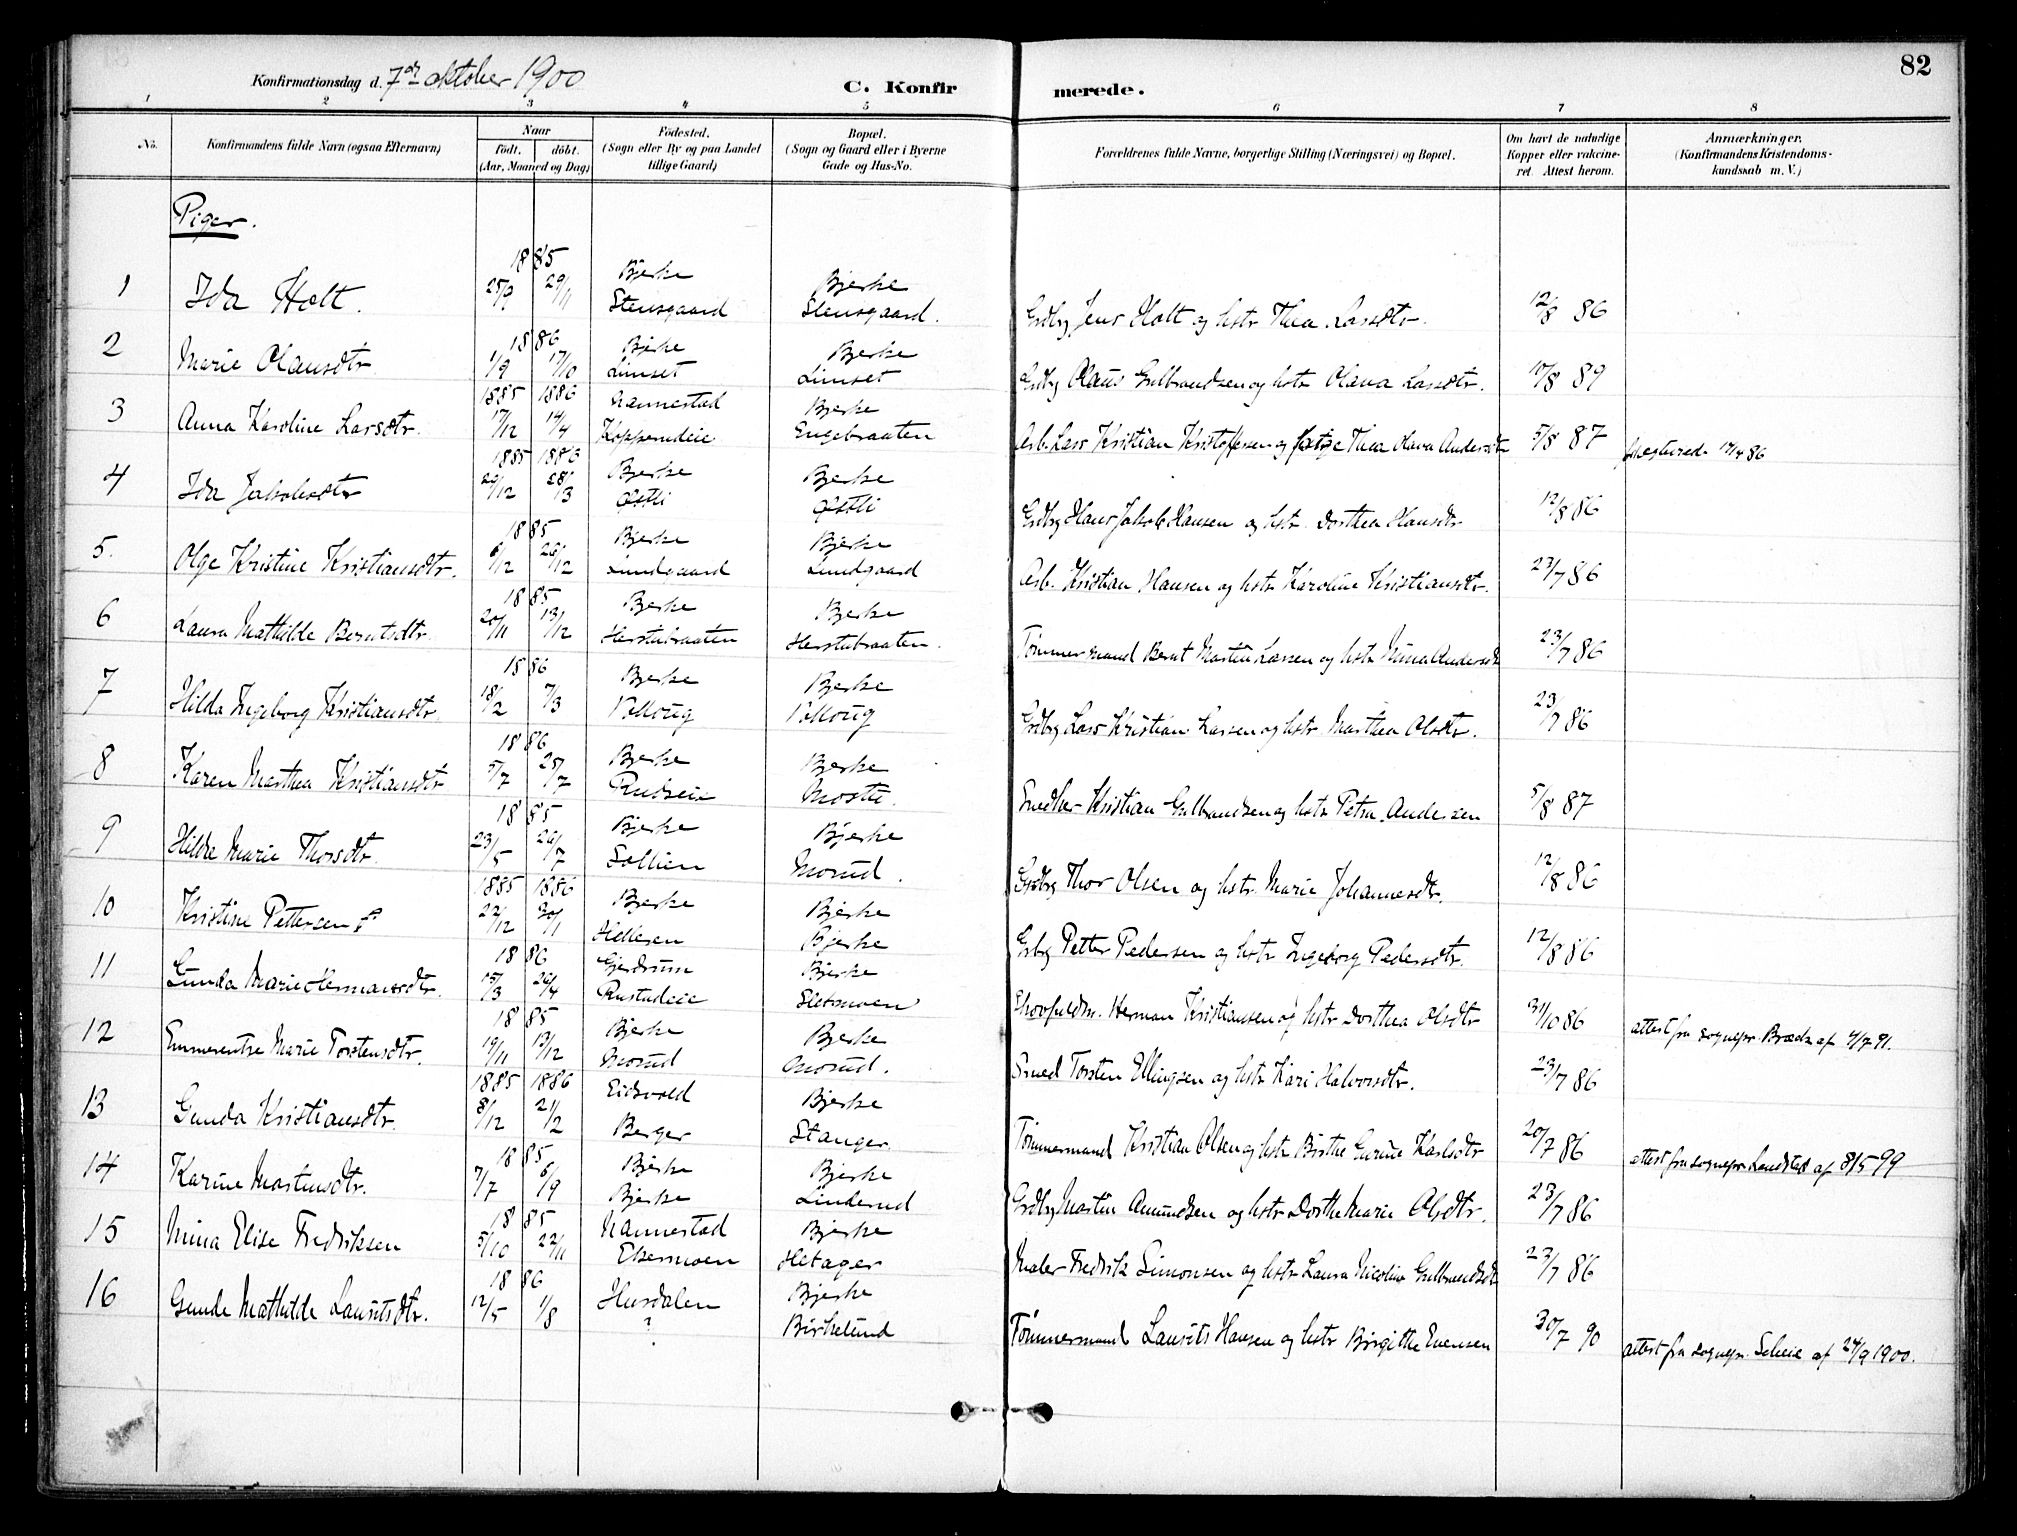 82
Konfirmationsdag d. 7de oktober 1900
C. Konfirmerede.
1 2 3 4 5 6 7 8
No.
Konfirmandens fulde Navn (ogsaa Efternavn)
Naar
födt. döbt.
(Aar, Maaned og Dag)
Födested.
(Sogn eller By og paa Landet
tillige Gaard)
Bopæl.
(Sogn og Gaard eller i Byerne
Gade og Hus-No.
Forældrenes fulde Navne, borgerlige Stilling (Næringsvei) og Bopæl.
Om havt de naturlige
Kopper eller vakcine-
ret. Attest herom.
Anmærkninger.
(Konfirmandens Kristendoms-
kundskab m. V.)
Piger.
1 Ida Holt. 1885 25/9 29/11 Bjerke Stensgaard Bjerke Stensgaard. Grdbg Jens Holt og hstr Thea Larsdtr. 12/8 86
2 Marie Olausdtr 1886 1/9 17/10 Bjerke Limset Bjerke Limset Grdbg Olaus Gulbrandsen og hstr Olava Larsdtr. 17/8 89
3 Anna Karoline Larsdtr. 1885 17/12 1886 14/4 Nannestad Kopperudeie Bjerke Engebraaten Arb. Lars Kristian Kristoffersen og Thea Olava Andersdtr 5/8 87 17/4 86
4 Ida Jakobsdtr 1885 29/12 1886 28/3 Bjerke Østli Bjerke Østli Grdbg Hans Jakob Hansen og hstr. Dorthea Hansdtr 12/8 86
5. Olge Kristine Kristiansdtr. 1885 6/12 26/12 Bjerke Lundgaard Bjerke Lundgaard Arb. Kristian Hansen og hstr Karoline Kristiansdtr. 23/7 86
6 Laura Mathilde Berntsdtr. 1885 20/11 13/12 Bjerke Herstubraaten Bjerke Herstubraaten. Tømmermand Bernt Martin Larsen og hstr Mina Andersdtr 23/7 86
7 Hilda Ingeborg Kristiansdtr. 1886 18/2 7/3 Bjerke Bjerke Grdbg Lars Kristian Larsen og hstr Marthea Olsdtr. 23/7 86
8 Karen Marthea Kristiansdtr 1886 5/7 25/7 Bjerke Rudseie Bjerke Grdbg Kristian Gulbrandsen og hstr Petra Andersen 5/8 87
9 Hilda Marie Thorsdtr. 1885 23/5 26/7 Bjerke Sollien Bjerke Morud. Grdbg Thor Olsen og hstr. Marie Johannesdtr. 12/8 86
10 Kristine Pettersen 1885 22/12 1886 30/1 Bjerke Hellesen Bjerke Bjerke Grbg Petter Pedersen og hstr Ingeborg Pedersdtr. 12/8 86
11 Gunda Marie Hermansdtr. 1886 15/3 26/4 Gjerdrum Rustadeie Bjerke Sletmoen Skovfuldm. Herman Kristiansen og hstr Dorthea Olsdtr 31/10 86 attest fra sognepr. af 4/7 91.
12 Emmerentse Marie Torstensdtr. 1885 19/11 13/12 Bjerke Morud Bjerke Morud. Smed Torsten Ellingsen og hstr Kari Halvorsdtr. 23/7 86
13 Gunda Kristiansdtr. 1885 8/12 1886 21/2 Eidsvold Berger Bjerke Stanger. Tømmermand Kristian Olsen og hstr Birthe Gurine Karlsdtr 20/7 86 attest fra sognepr Landstad af 8/5 99
14 Karine Martinsdtr. 1885 7/7 6/9 Bjerke Bjerke Bjerke Linderud Grdbg Martin Amundsen og hstr Dorthe Marie Olsdtr. 23/7 86
15 Mina Elise Fredriksen 1885 5/10 22/11 Nannestad Ekermoen Bjerke Hetager Maler Fredrik Simonsen og hstr Laura Nicoline Gulbrandsdtr 23/7 86
16 Gunda Mathilde Lauritsdtr. 1886 12/5 1/8 Hurdalen ? Bjerke Birkelund Tømmermand Laurits Hansen og hstr Birgitte Evensen 30/7 90 attest fra sognepr. Scheie af 24/9 1900.